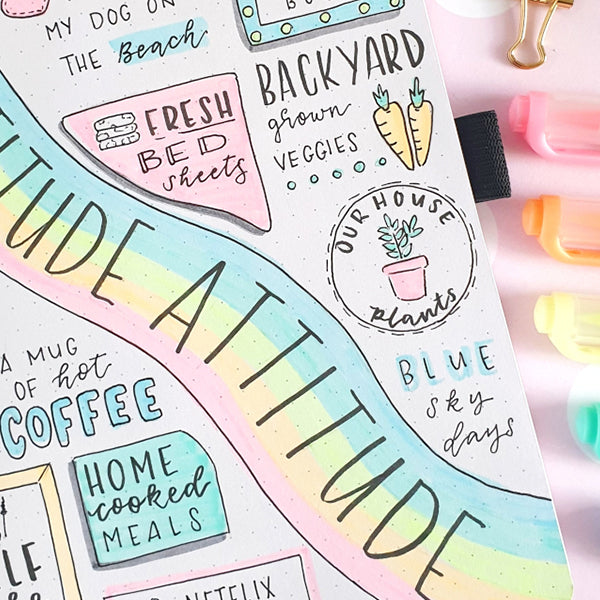 MY DOG ON
THE Beach
BACKYARD
grown
VEGGIES
FRESH
BED
sheets
OUR HOUSE
plants
TUDE ATTITUDE
BLUE
sky
days
A MUG
OF hot
COFFEE
HOME
cooked
MEALS
NETFLIX